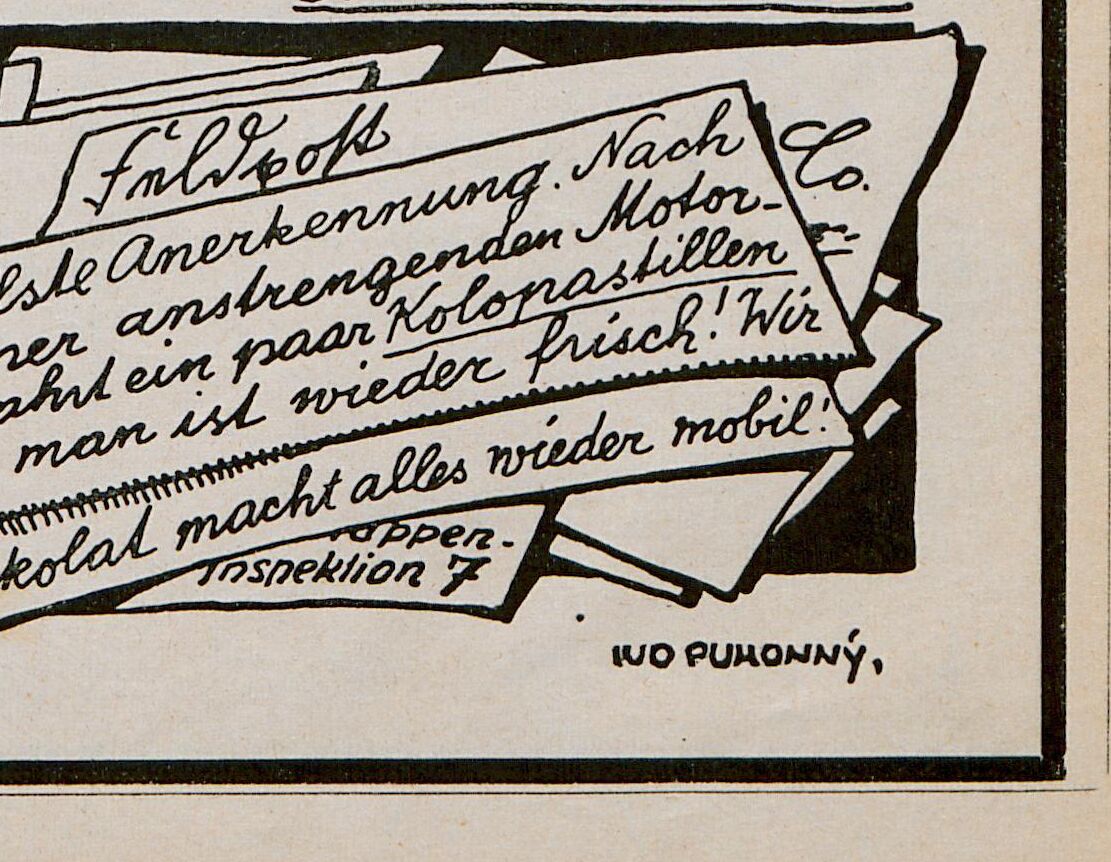 Feldpost
Co.
Anerkennung. Nach
anstrengenden Motor-
ein paar Kolapastillen
man ist wieder frisch! Wir
macht alles wieder mobil!
Inspektion 7
IVO PUHONNÝ,